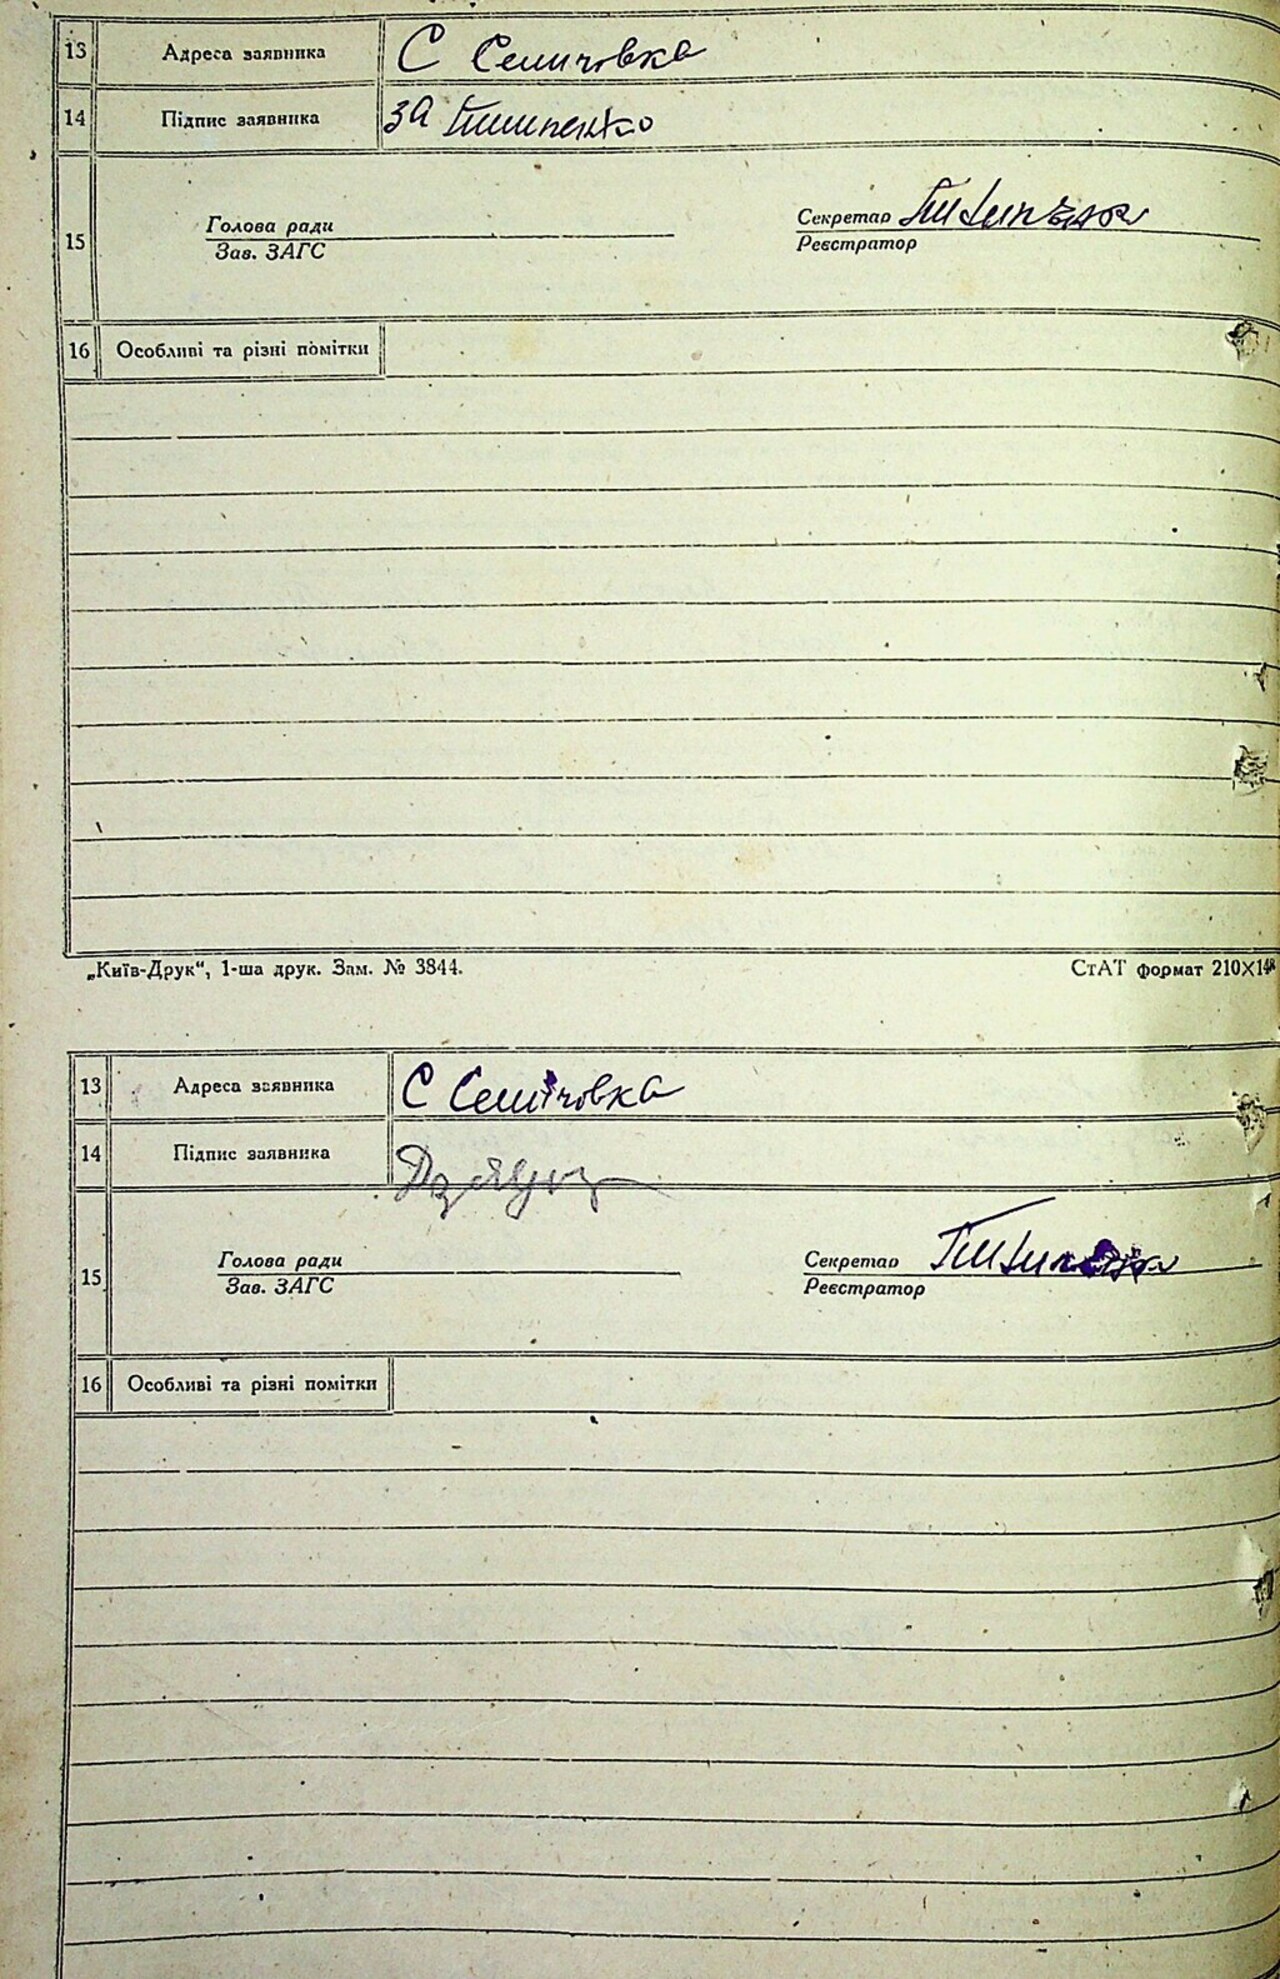 13 Адреса заявника С Семиговка
14 Підпис заявника за Тимпенко
Голова ради Секретар
15
Зав. ЗАГС Реєстратор
16 Особливі та різні помітки
„Київ-Друк“, 1-ша друк. Зам. № 3844. СтАТ формат 210×148
13 Адреса заявника С Семіговка
14 Підпис заявника
Голова ради Секретар
15
Зав. ЗАГС Реєстратор
16 Особливі та різні помітки